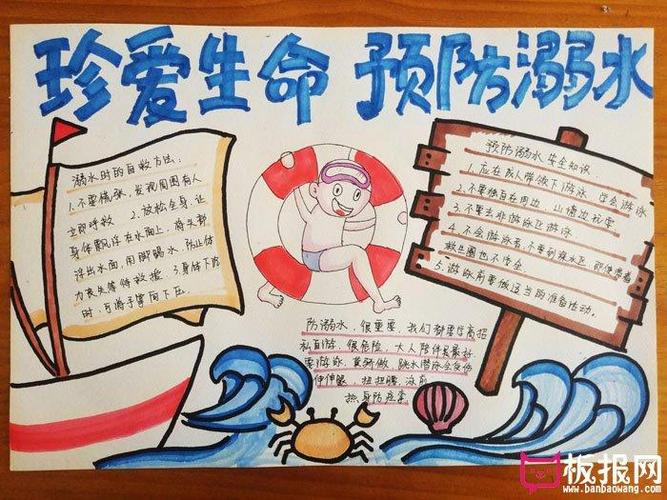 珍爱生命 预防溺水
溺水时的自救方法:
1.不要慌张,发现周围有人
立即呼救 2.放松全身,让
身体飘浮在水面上,将头部
浮出水面,用脚踢水,防止体
力丧失等待救援 3.身体下沉
时,可将手掌向下压
预防溺水安全知识
1.应在成人带领下游泳 学会游泳
2.不要独自在河边 山塘边玩耍
3.不要去非游泳区游泳
4.不会游泳者,不要到深水区 即使带着
救生圈也不安全
5.游泳前要做适当的准备活动。
防溺水,很重要,我们都要学高招
私自游,很危险,大人陪伴是最好
要游泳,莫骄傲,跳水潜泳会发
伸伸腿,扭扭腰,泳前
热身防痉挛
板报网
www.banbaowang.com